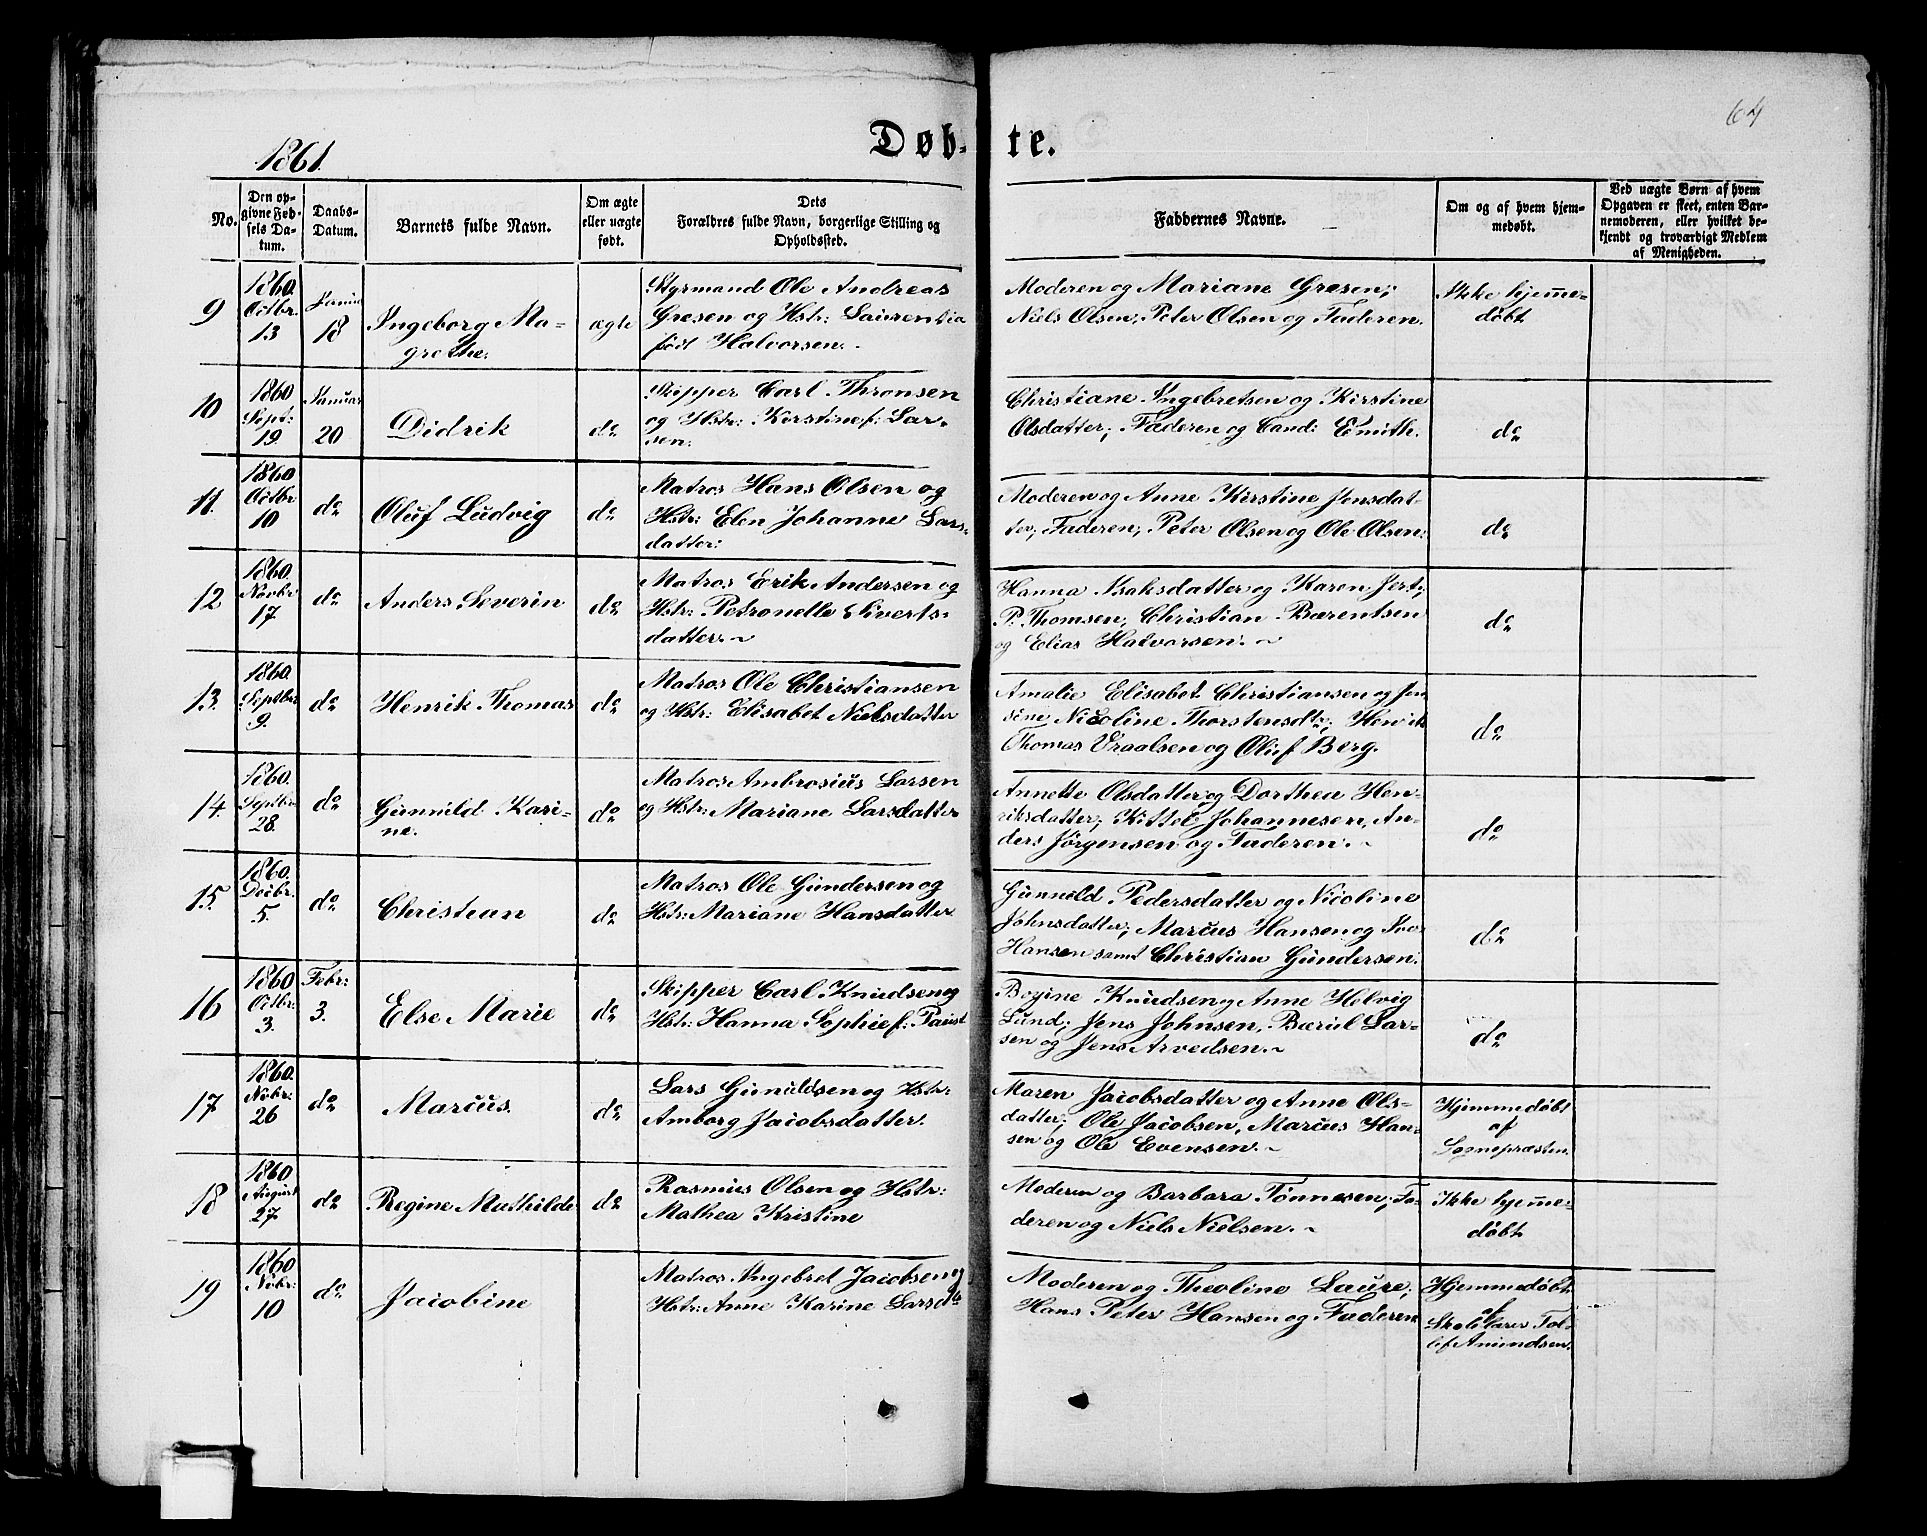 64
1861.
Døb- te.
No.
Den op-
givne Fød-
sels Da-
tum.
Daabs-
Datum.
Barnets fulde Navn.
Om ægte
eller uægte
født.
Dets
Forældres fulde Navn, borgerlige Stilling og
Opholdssted.
Faddernes Navne.
Om og af hvem hjem-
medøbt.
Ved uægte Børn af hvem
Opgaven er skeet, enten Bar-
nemoderen, eller hvilket be-
kjendt og troværdigt Medlem
af Menigheden.
9
1860.
Octbr.
13
Januar
18
Ingeborg Ma-
grethe.
ægte
Styrmand Ole Andreas
Gresen og Hstr: Laurentia
født Halvorsen.
Moderen og Mariane Gresen;
Niels Olsen, Peter Olsen og Faderen.
Ikke hjemme-
døbt
10
1860
Sept:
19.
Januar
20
Didrik
do
Skipper Carl Thronsen
og Hstr: Kirstine f: Lar-
sen.
Christiane Ingebretsen og Kirstine
Olsdatter; Faderen og Cand: Smith.
do
11.
1860
Octbr
10
do
Oluf Ludvig
do
Matros Hans Olsen og
Hstr: Elen Johanne Lars-
datter:
Moderen og Anne Kirstine Jensdat-
ter; Faderen, Peter Olsen og Ole Olsen.
do
12
1860.
Novbr
17.
do
Anders Severin
do
Matros Erik Andersen og
Hstr: Petronelle Siverts-
datter.
Hanna Isaksdatter og Karen
P. Thomsen; Christian Bærentsen
og Elias Halvorsen.
do
13.
1860.
Septbr
9.
do
Henrik Thomas
do
Matros Ole Christiansen
og Hstr: Elisabet Nielsdatter
Amalie Elisabet Christiansen og Jen
sine Nicoline Thorstensdtr; Henrik
Thomas Vraalsen og Oluf Berg.
do
14.
1860.
Septbr
28.
do
Gunnild Kari-
ne.
do
Matros Ambrosius Larsen
og Hstr: Mariane Larsdatter
Annette Olsdatter og Dorthea Hen-
riksdatter; Kittel Johannesen, An-
ders Jörgensen og Faderen.
do
15.
1860.
Decbr.
5.
do
Christian
do
Matros Ole Gundersen og
Hstr: Mariane Hansdatter
Gunnild Pedersdatter og Nicoline
Johnsdatter; Marcus Hansen og
Hansen samt Christian Gundersen.
do
16
1860
Octbr.
3.
Febr:
3.
Else Marie
do
Skipper Carl Knudsen og
Hstr: Hanna Sophie f: Paust
Bogine Knudsen og Anne Helvig
Lund; Jens Johnsen, Bærul Lar-
sen og Jens Arvedsen.
do
17.
1860.
Nvbr:
26
do
Marcus.
do
Lars Gunuldsen og Hstr:
Amborg Jacobsdatter.
Maren Jacobsdatter og Anne Ols-
datter; Ole Jacobsen, Marcus Han-
sen og Ole Evensen.
Hjemmedøbt
af
Sognepræsten.
18
1860
August
27.
do
Regine Mathilde
do
Rasmus Olsen og Hstr:
Mathea Kristine
Moderen og Barbara Tønnesen; Fa-
deren og Niels Nielsen.
Ikke hjemme-
døbt
19
1860
Nvbr:
10
do
Jacobine
Matros Ingebret Jacobsen og
Hstr: Anne Karine Larsdtr
Moderen og Theoline Laure;
Hans Peter Hansen og Faderen
Hjemmedøbt
af
Skolelærer Tol-
lef Amundsen.